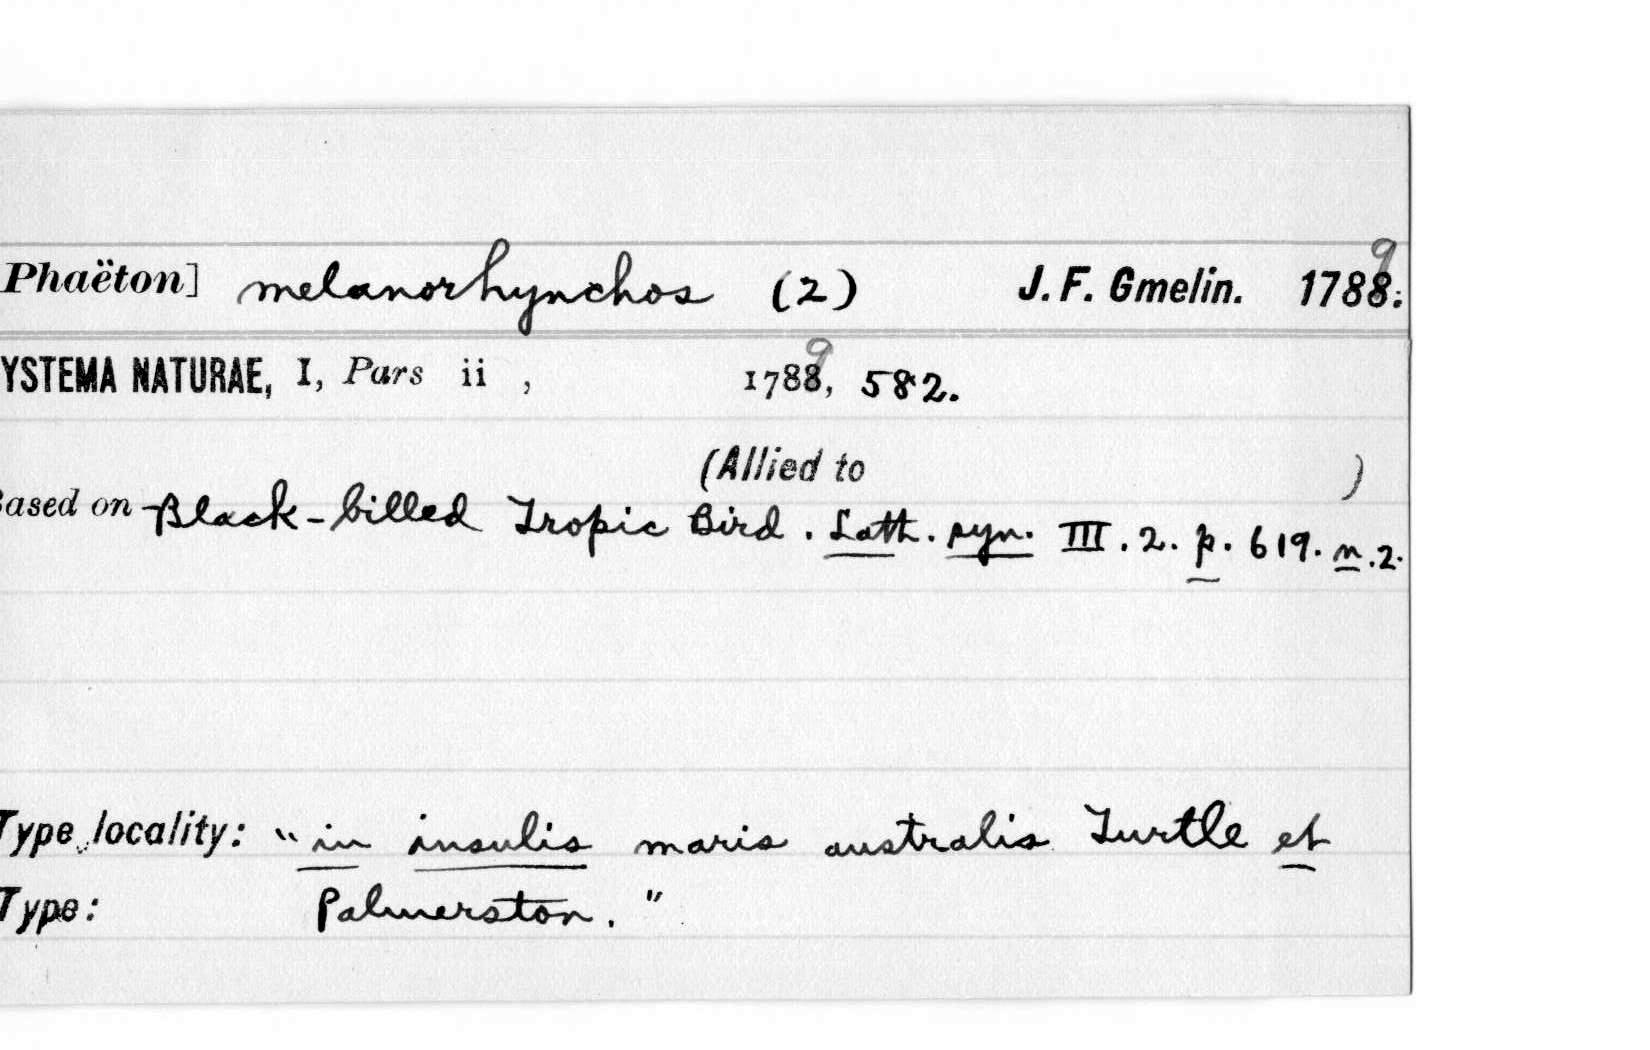 Phaëton] melanorhynchos (2) J. F. Gmelin. 1789.
YSTEMA NATURAE, I, Pars ii , 1789, 582.
(Allied to )
Based on Black-billed Tropic Bird. Lath. syn. III. 2. p. 619. n. 2.
Type locality: "in insulis maris australis Turtle et
Type: Palmerston."